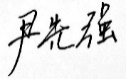 尹先强